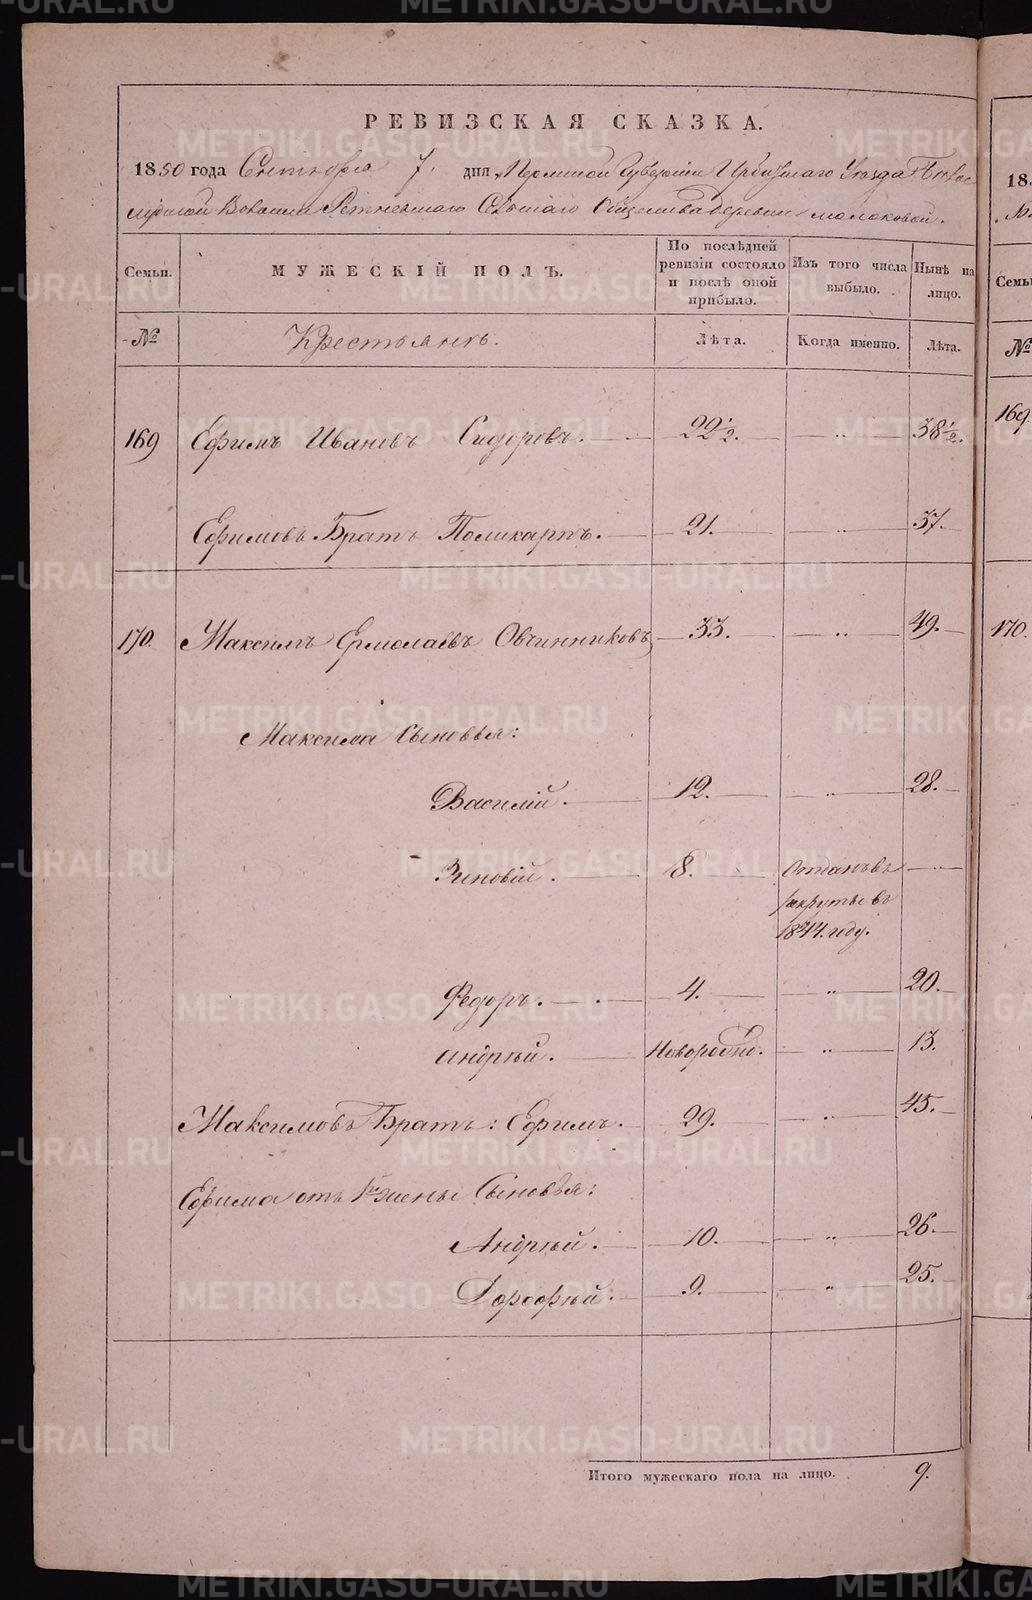 РЕВИЗСКАЯ СКАЗКА.
1850 года Сентября 7. дня Пермской Губерніи Ирбитскаго Уезда
Волости Ретневскаго Сельскаго Общества деревни Молоковой.
Семьи. МУЖЕСКІЙ ПОЛЪ. По послѣдней ревизіи состояло и послѣ оной прибыло. Изъ того числа выбыло. Нынѣ на лицо.
№ Крестьянъ. Лѣта. Когда именно. Лѣта.
169 Ефимъ Ивановъ Сидоровъ. 22½. „ 38½.
Ефимовъ Братъ Поликарпъ. 21. „ 37.
170. Максимъ Ермолаевъ Овчинниковъ 33. „ 49.
Максима Сыновья:
Василій. 12. „ 28.
Зиновій. 8. Отданъ въ
рекруты въ
1844. году.
Федоръ. 4. „ 20.
Андрѣй. Новорожд. „ 13.
Максимовъ Братъ: Ефимъ. 29. „ 45.
Ефима отъ 1й жены Сыновья:
Андрѣй. 10. „ 26.
Дорофѣй. 9. „ 25.
Итого мужескаго пола на лицо. 9.
18
Семьи
№
169.
170.
METRIKI.GASO-URAL.RU